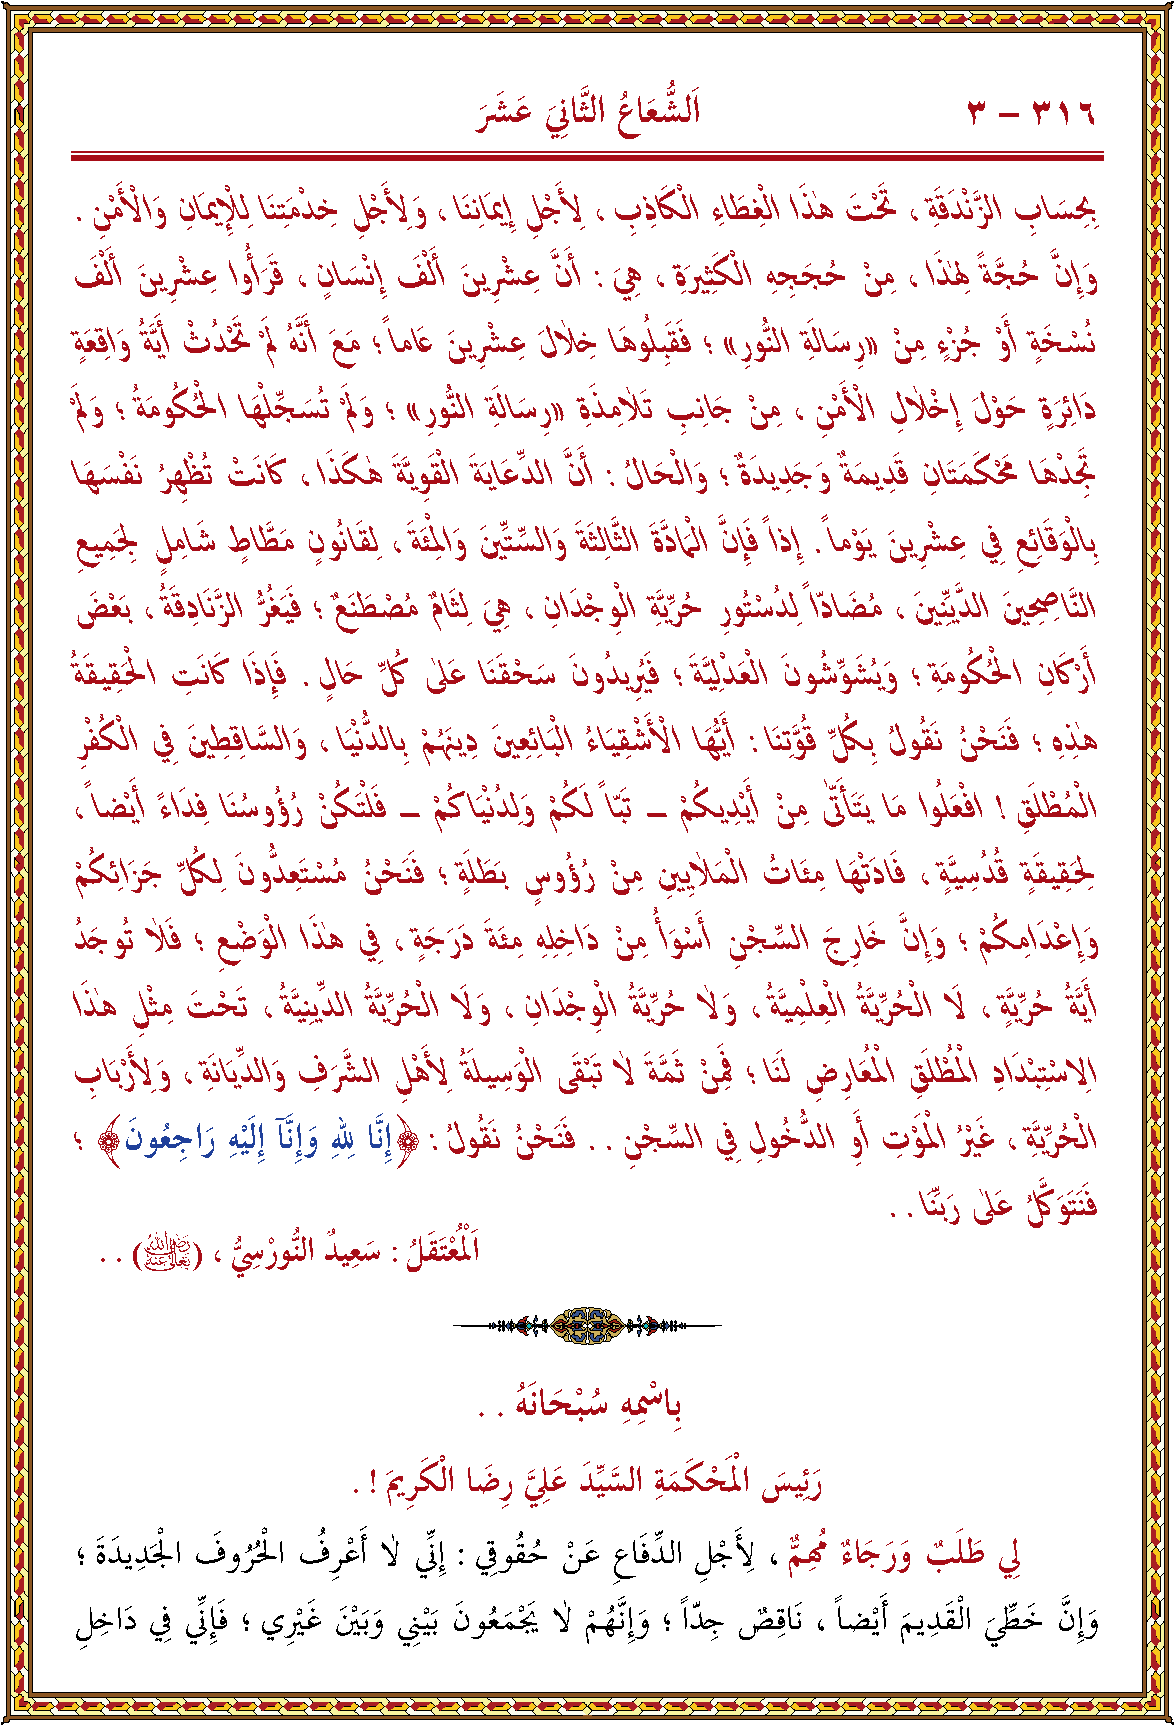 ٣١٦ – ٣
اَلشُّعَاعُ الثَّانِيَ عَشَرَ
بِحِسَابِ الزَّنْدَقَةِ ، تَحْتَ هٰذَا الْغِطَاءِ الْكَاذِبِ ، لِأَجْلِ إِيمَانِنَا ، وَلِأَجْلِ خِدْمَتِنَا لِلْإِيمَانِ وَالْأَمْنِ .
وَإِنَّ حُجَّةً لِهٰذَا ، مِنْ حُجَجِهِ الْكَثِيرَةِ ، هِيَ : أَنَّ عِشْرِينَ أَلْفَ إِنْسَانٍ ، قَرَأُوا عِشْرِينَ أَلْفَ
نُسْخَةٍ أَوْ جُزْءٍ مِنْ «رِسَالَةِ النُّورِ» ؛ فَقَبِلُوهَا خِلَالَ عِشْرِينَ عَاماً ؛ مَعَ أَنَّهُ لَمْ تَحْدُثْ أَيَّةُ وَاقِعَةٍ
دَائِرَةٍ حَوْلَ إِخْلَالِ الْأَمْنِ ، مِنْ جَانِبِ تَلَامِذَةِ «رِسَالَةِ النُّورِ» ؛ وَلَمْ تُسَجِّلْهَا الْحُكُومَةُ ؛ وَلَمْ
تَجِدْهَا مَحْكَمَتَانِ قَدِيمَةٌ وَجَدِيدَةٌ ؛ وَالْحَالُ : أَنَّ الدِّعَايَةَ الْقَوِيَّةَ هٰكَذَا ، كَانَتْ تُظْهِرُ نَفْسَهَا
بِالْوَقَائِعِ فِي عِشْرِينَ يَوْماً . إِذاً فَإِنَّ الْمَادَّةَ الثَّالِثَةَ وَالسِّتِّينَ وَالْمِئَةَ ، لِقَانُونٍ مَطَّاطٍ شَامِلٍ لِجَمِيعِ
النَّاصِحِينَ الدَّيِّنِينَ ، مُضَادّاً لِدُسْتُورِ حُرِّيَّةِ الْوِجْدَانِ ، هِيَ لِثَامٌ مُصْطَنَعٌ ؛ فَيَغُرُّ الزَّنَادِقَةُ ، بَعْضَ
أَرْكَانِ الْحُكُومَةِ ؛ وَيُشَوِّشُونَ الْعَدْلِيَّةَ ؛ فَيُرِيدُونَ سَحْقَنَا عَلىٰ كُلِّ حَالٍ . فَإِذَا كَانَتِ الْحَقِيقَةُ
هٰذِهِ ؛ فَنَحْنُ نَقُولُ بِكُلِّ قُوَّتِنَا : أَيُّهَا الْأَشْقِيَاءُ الْبَائِعِينَ دِينَهُمْ بِالدُّنْيَا ، وَالسَّاقِطِينَ فِي الْكُفْرِ
الْمُطْلَقِ ! افْعَلُوا مَا يَتَأَتّىٰ مِنْ أَيْدِيكُمْ – تَبّاً لَكُمْ وَلِدُنْيَاكُمْ – فَلْتَكُنْ رُؤُوسُنَا فِدَاءً أَيْضاً ،
لِحَقِيقَةٍ قُدُسِيَّةٍ ، فَادَتْهَا مِئَاتُ الْمَلَايِينِ مِنْ رُؤُوسٍ بَطَلَةٍ ؛ فَنَحْنُ مُسْتَعِدُّونَ لِكُلِّ جَزَائِكُمْ
وَإِعْدَامِكُمْ ؛ وَإِنَّ خَارِجَ السِّجْنِ أَسْوَأُ مِنْ دَاخِلِهِ مِئَةَ دَرَجَةٍ ، فِي هٰذَا الْوَضْعِ ؛ فَلَا تُوجَدُ
أَيَّةُ حُرِّيَّةٍ ، لَا الْحُرِّيَّةُ الْعِلْمِيَّةُ ، وَلَا حُرِّيَّةُ الْوِجْدَانِ ، وَلَا الْحُرِّيَّةُ الدِّينِيَّةُ ، تَحْتَ مِثْلِ هٰذَا
الِاسْتِبْدَادِ الْمُطْلَقِ الْمُعَارِضِ لَنَا ؛ فَمِنْ ثَمَّةَ لَا تَبْقَى الْوَسِيلَةُ لِأَهْلِ الشَّرَفِ وَالدِّيَانَةِ ، وَلِأَرْبَابِ
الْحُرِّيَّةِ ، غَيْرُ الْمَوْتِ أَوِ الدُّخُولِ فِي السِّجْنِ . . فَنَحْنُ نَقُولُ : ﴿إِنَّا لِلّٰهِ وَإِنَّآ إِلَيْهِ رَاجِعُونَ﴾ ؛
فَنَتَوَكَّلُ عَلىٰ رَبِّنَا . .
اَلْمُعْتَقَلُ : سَعِيدٌ النُّورْسِيُّ ، (رَضِيَ اللهُ تَعَالَى عَنْهُ) . .
بِاسْمِهِ سُبْحَانَهُ . .
رَئِيسَ الْمَحْكَمَةِ السَّيِّدَ عَلِيَّ رِضَا الْكَرِيمَ ! .
لِي طَلَبٌ وَرَجَاءٌ مُهِمٌّ ، لِأَجْلِ الدِّفَاعِ عَنْ حُقُوقِي : إِنِّي لَا أَعْرِفُ الْحُرُوفَ الْجَدِيدَةَ ؛
وَإِنَّ خَطِّيَ الْقَدِيمَ أَيْضاً ، نَاقِصٌ جِدّاً ؛ وَإِنَّهُمْ لَا يَجْمَعُونَ بَيْنِي وَبَيْنَ غَيْرِي ؛ فَإِنِّي فِي دَاخِلِ